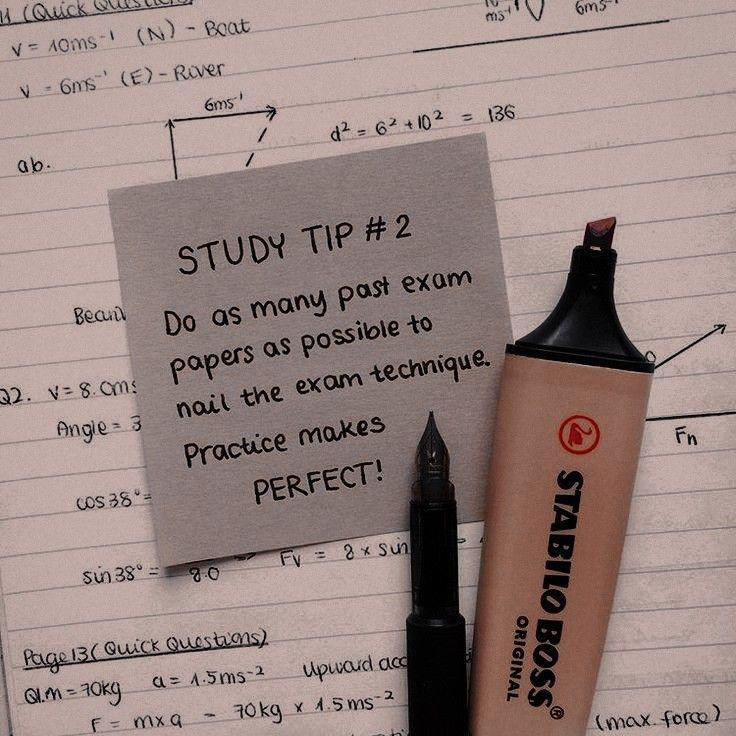 (Quick Questions)
v = 10ms⁻¹ (N) - Boat
v = 6ms⁻¹ (E) - River
6ms⁻¹
6ms⁻¹
ab.
d² = 6² + 10² = 136
STUDY TIP #2
Do as many past exam
papers as possible to
nail the exam technique.
Practice makes
PERFECT!
Q2. v = 8.0ms
Angle = 3
Fn
cos 38° =
sin 38° =
8.0
Fv = 8 × sin
STABILO BOSS®
ORIGINAL
Page 13 (Quick Questions)
Q1. m = 70kg a = 1.5ms⁻² Upward acc
F = m × a = 70kg × 1.5ms⁻²
(max force)